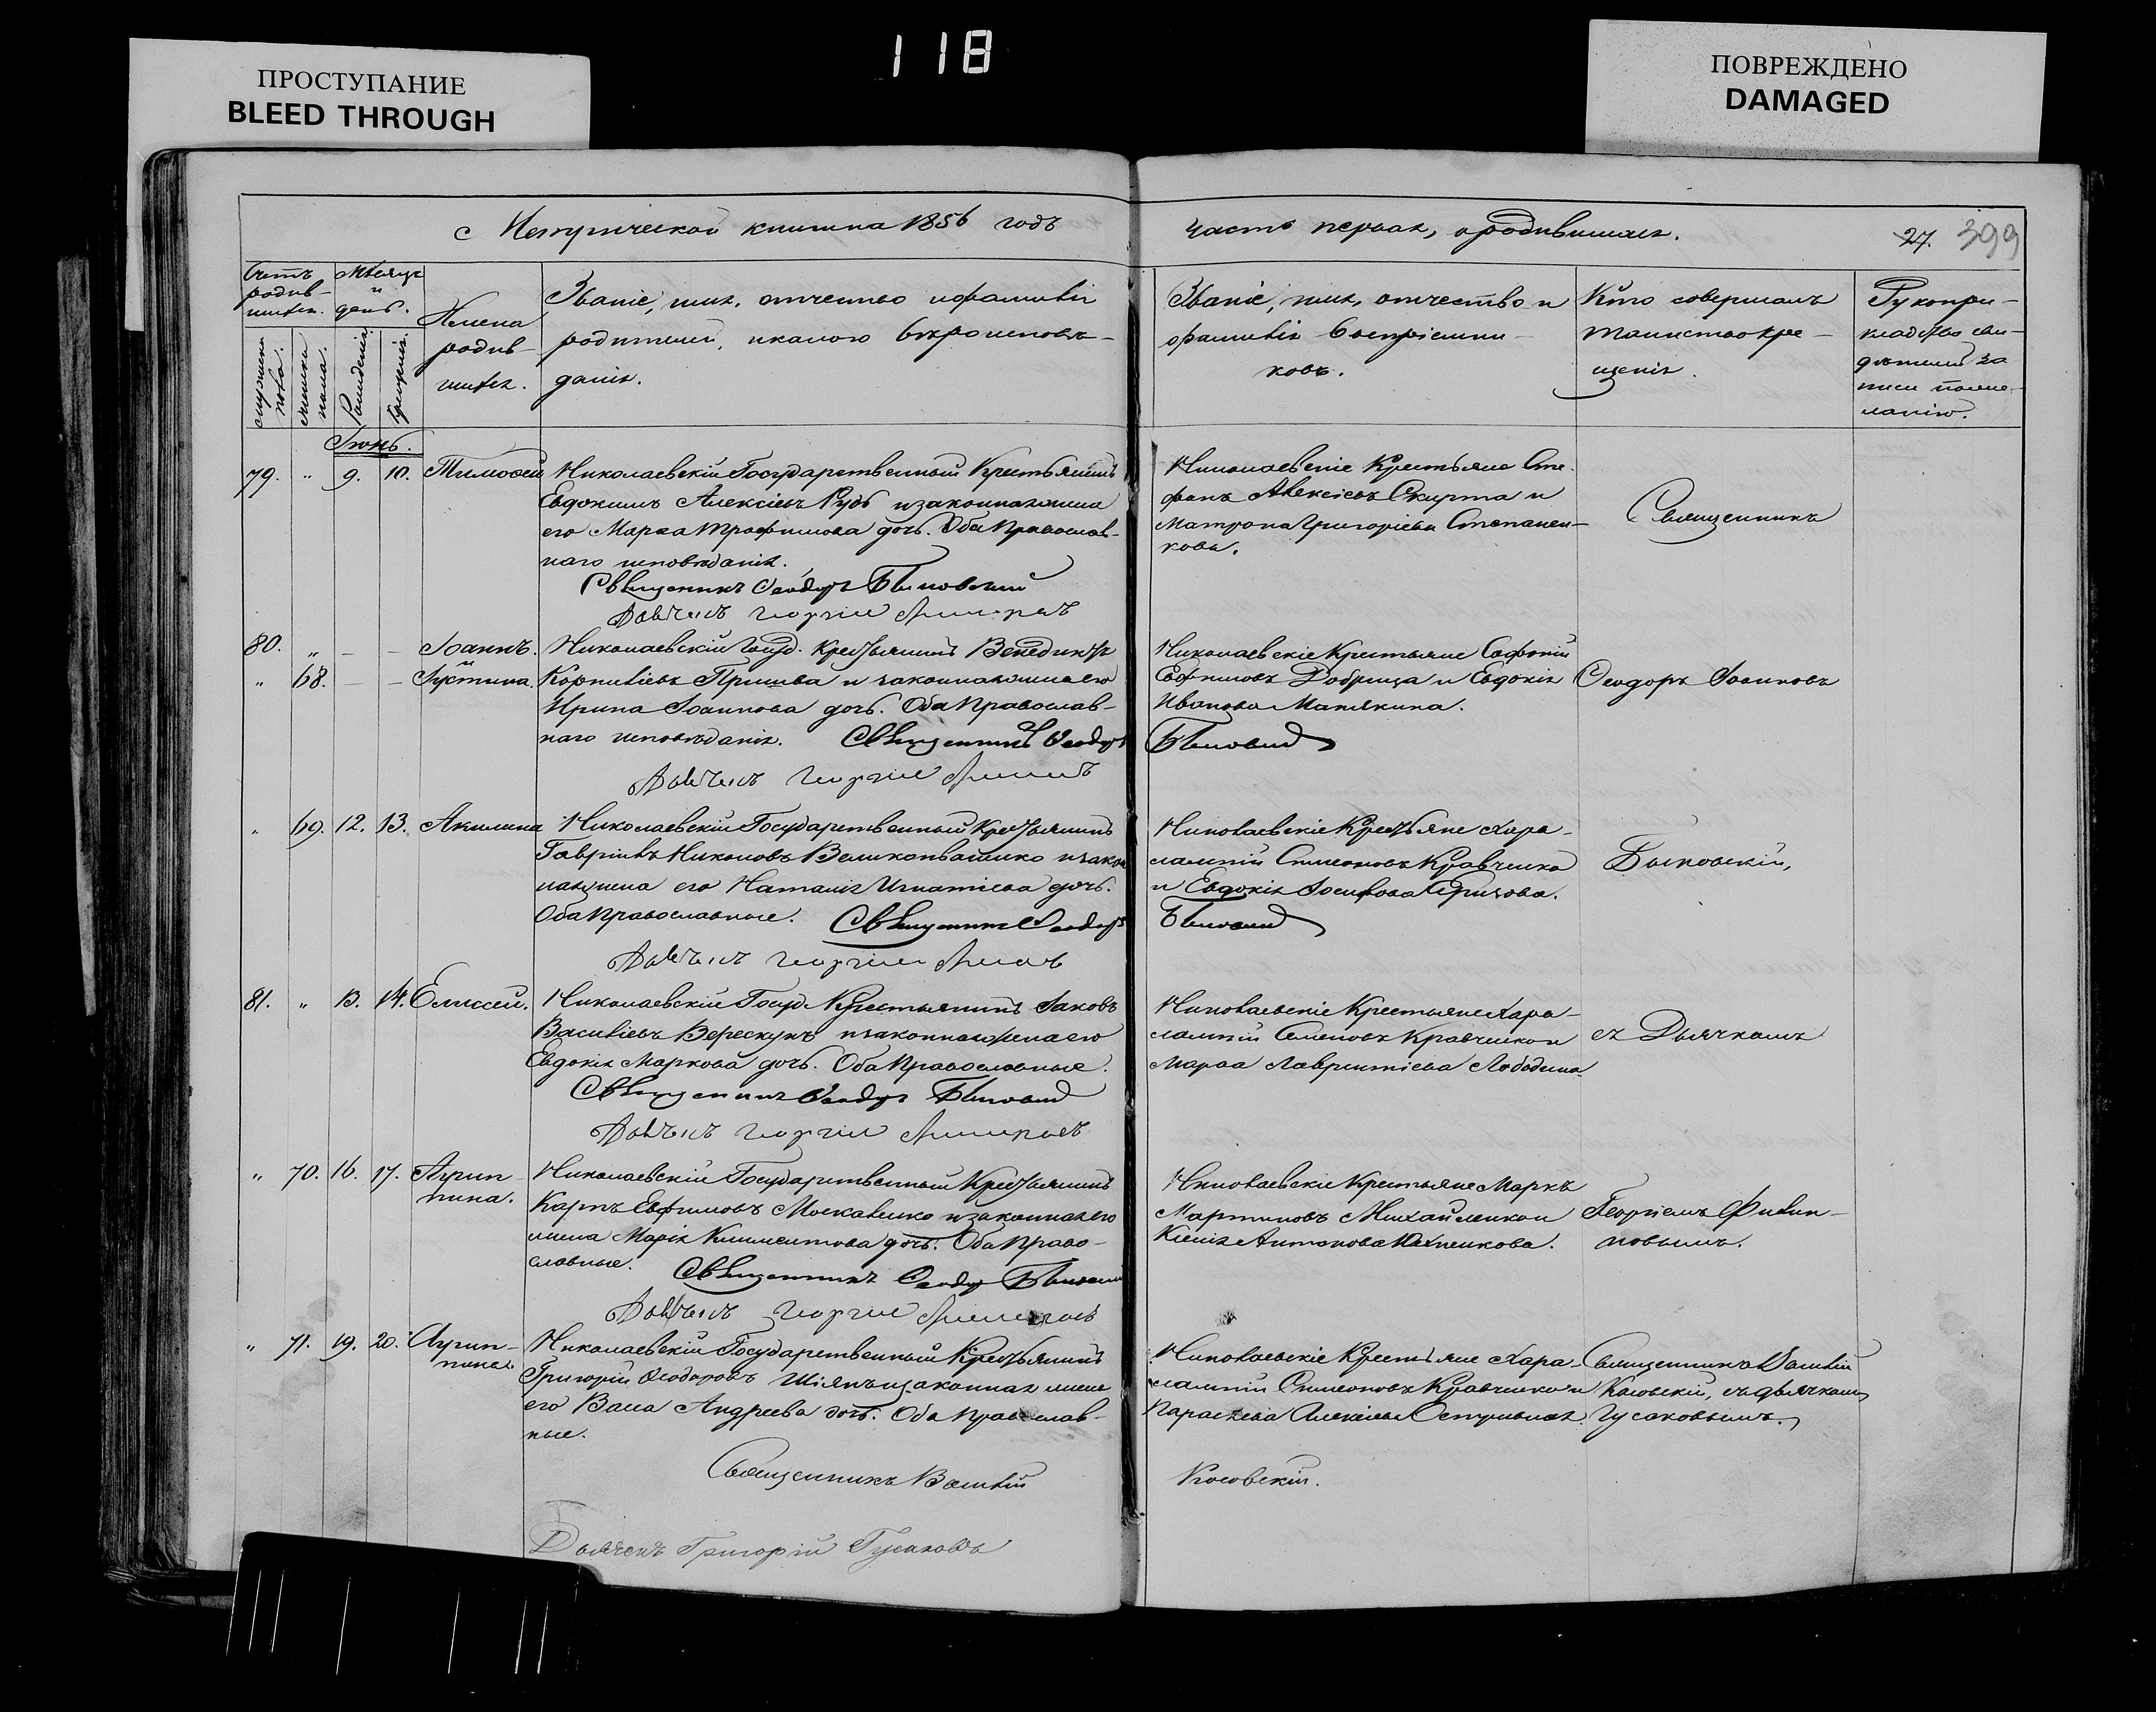 118
ПРОСТУПАНИЕ
BLEED THROUGH
ПОВРЕЖДЕНО
DAMAGED
Метрической книги на 1856 годъ
часть первая, о родившихся.
27. 399
Счетъ родив-шихся.
Мѣсяцъ и день.
мужеска пола.
женска пола.
Рожденія.
Крещенія.
Имена
родив-
шихся.
Званіе, имя, отчество и фамилія
родителей, и какого вѣроисповѣ-
данія.
Званіе, имя, отчество и
фамилія воспріемни-
ковъ.
Кто совершалъ
таинство кре-
щенія.
Рукопри-
кладство сви-
дѣтелей за
писи по же-
ланію.
Іюнь.
79. " 9. 10. Тимофей
Николаевскій Государственный Крестьянинъ
Евдокимъ Алексіевъ Рудь и законная жена
его Марѳа Трофимова дочь. Оба Православ-
наго исповѣданія.
Священникъ Ѳеодоръ Быковский
Николаевскіе Крестьяне Сте-
фанъ Алексіевъ Скирта и
Матрона Григоріева Степанен-
кова.
Священникъ
80. " – – Іоаннъ.
и
" 68. – – Іустина.
Николаевскій Госуд. Крестьянинъ Венедиктъ
Корниліевъ и законная жена его
Ирина Іоаннова дочь. Оба Православ-
наго исповѣданія. Священникъ Ѳеодоръ
Николаевскіе Крестьяне Софоній
Евфимовъ Добрица и Евдокія
Иванова Манякина.
Ѳеодоръ Іоанновъ
69. 12. 13. Акилина
Николаевскій Государственный Крестьянинъ
Гавріилъ Никоновъ и закон
ная жена его Наталія Игнатіева дочь.
Оба Православные. Священникъ Ѳеодоръ
Николаевскіе Крестьяне Хара-
лампій Симеоновъ Кравченко
и Евдокія Іосифова
Быковскій,
81. " 13. 14. Елиссей.
Николаевскій Госуд. Крестьянинъ Іаковъ
Василіевъ Верескунъ и законная жена его
Евдокія Маркова дочь. Оба Православные.
Священникъ Ѳеодоръ
Николаевскіе Крестьяне Хара-
лампій Семеновъ Кравченко и
Марѳа Лаврентіева Лободина
съ Дьячкомъ
" 70. 16. 17. Агрип-
пина.
Николаевскій Государственный Крестьянинъ
Карпъ Евфимовъ Москаленко и законная его
жена Марія Климентова дочь. Оба Право-
славные. Священникъ Ѳеодоръ
Николаевскіе Крестьяне Маркъ
Мартиновъ Михайленко и
Ксенія Антонова
Георгіемъ Филип-
повымъ.
" 71. 19. 20. Агрип-
пина.
Николаевскій Государственный Крестьянинъ
Григорій Ѳеодоровъ и законная жена
его Васа Андреева дочь. Оба православ-
ные.
Николаевскіе Крестьяне Хара-
лампій Симеоновъ Кравченко и
Параскева Алексіева
Священникъ Василій
Косовскій, съ дьячкомъ
Гусаковымъ.
Священникъ Василій
Косовскій.
Дьячекъ Григорій Гусаковъ